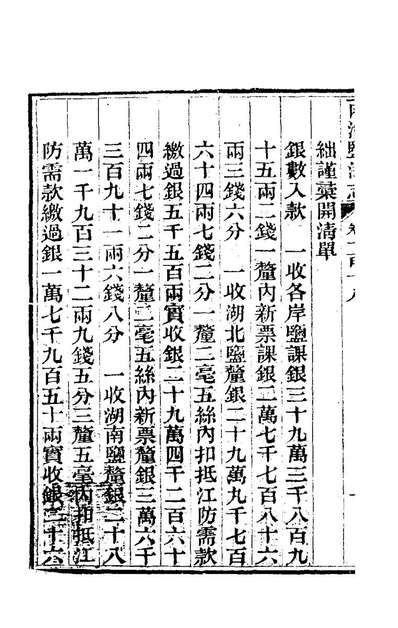 絀謹彙開清單
銀數入款　一收各岸鹽課銀三十九萬三千八百九
十五兩二錢一釐內新票課銀二萬七千七百八十六
兩三錢六分　一收湖北鹽釐銀二十九萬九千七百
六十四兩七錢二分一釐二毫五絲內扣抵江防需款
繳過銀五千五百兩實收銀二十九萬四千二百六十
四兩七錢二分一釐二毫五絲內新票釐銀三萬六千
三百九十一兩六錢八分　一收湖南鹽釐銀二十八
萬一千九百三十二兩九錢五分三釐五毫內扣抵江
防需款繳過銀一萬七千九百五十兩實收銀二十六